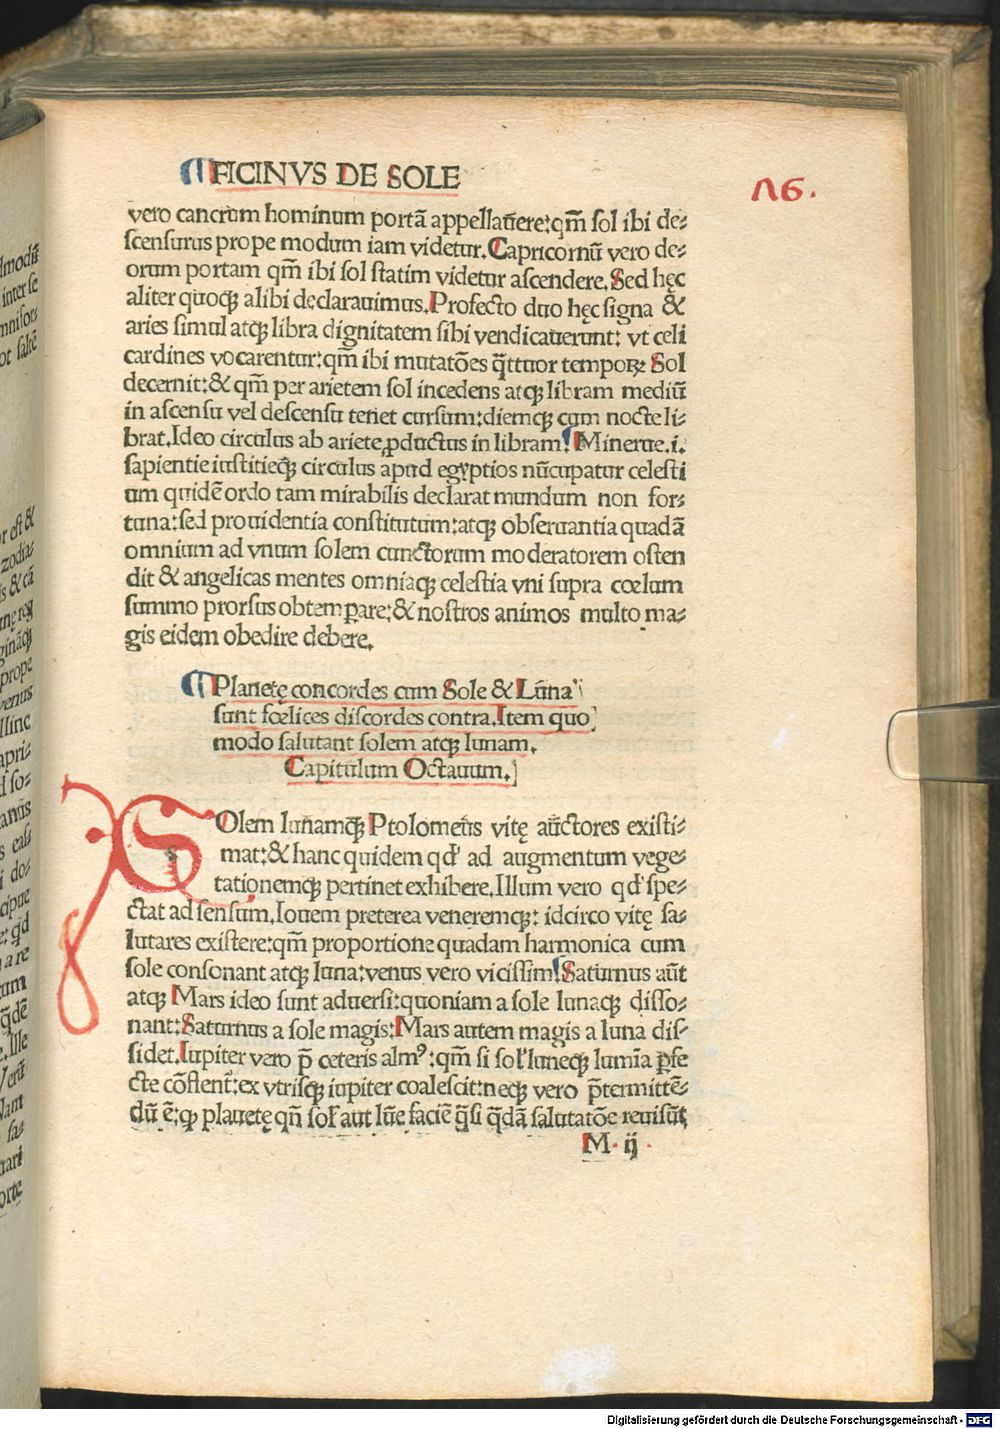 FICINVS DE SOLE
Λ6.
vero cancrum hominum portā appellauere:qm̄ sol ibi de⸗
scensurus prope modum iam videtur.Capricornū vero de⸗
orum portam qm̄ ibi sol statim videtur ascendere.Sed hęc
aliter quoqꝫ alibi declarauimus.Profecto duo hęc signa &
aries simul atqꝫ libra dignitatem sibi vendicauerunt: vt celi
cardines vocarentur:qm̄ ibi mutatōes q̄ttuor tempoꝝ Sol
decernit:& qm̄ per arietem sol incedens atqꝫ libram mediū
in ascensu vel descensu tenet cursum:diemqꝫ cum nocte li⸗
brat.Ideo circulus ab ariete ꝓductus in libram Minerue.i.
sapientie iustitieqꝫ circulus apud egyptios nūcupatur celesti
um quidē ordo tam mirabilis declarat mundum non for⸗
tuna:sed prouidentia constitutum:atqꝫ obseruantia quadā
omnium ad vnum solem cunctorum moderatorem osten
dit & angelicas mentes omniaqꝫ celestia vni supra cœlum
summo prorsus obtemꝑare:& nostros animos multo ma⸗
gis eidem obedire debere.
Planetę concordes cum Sole & Lūna
sunt fœlices discordes contra.Item quo
modo salutant solem atqꝫ lunam.
Capitulum Octauum.
SOlem lunamqꝫ Ptolomeus vitę auctores existi⸗
mat:& hanc quidem qd' ad augmentum vege⸗
tationemqꝫ pertinet exhibere.Illum vero qd' spe⸗
ctat ad sensum.Iouem preterea veneremqꝫ: idcirco vitę sa⸗
lutares existere:qm̄ proportione quadam harmonica cum
sole consonant atqꝫ luna:venus vero vicissim Saturnus aūt
atqꝫ Mars ideo sunt aduersi:quoniam a sole lunaqꝫ disso⸗
nant:Saturnus a sole magis:Mars autem magis a luna dis⸗
sidet.Iupiter vero p̄ ceteris almꝰ:qm̄ si sol' luneqꝫ lumīa ꝑfe
cte cōflent:ex vtrisqꝫ iupiter coalescit:neqꝫ vero p̄termittē⸗
dū ē:ꝙ planetę qn̄ sol' aut lūe faciē q̄si q̄dā salutatōe reuisūt
M ij
Digitalisierung gefördert durch die Deutsche Forschungsgemeinschaft - DFG